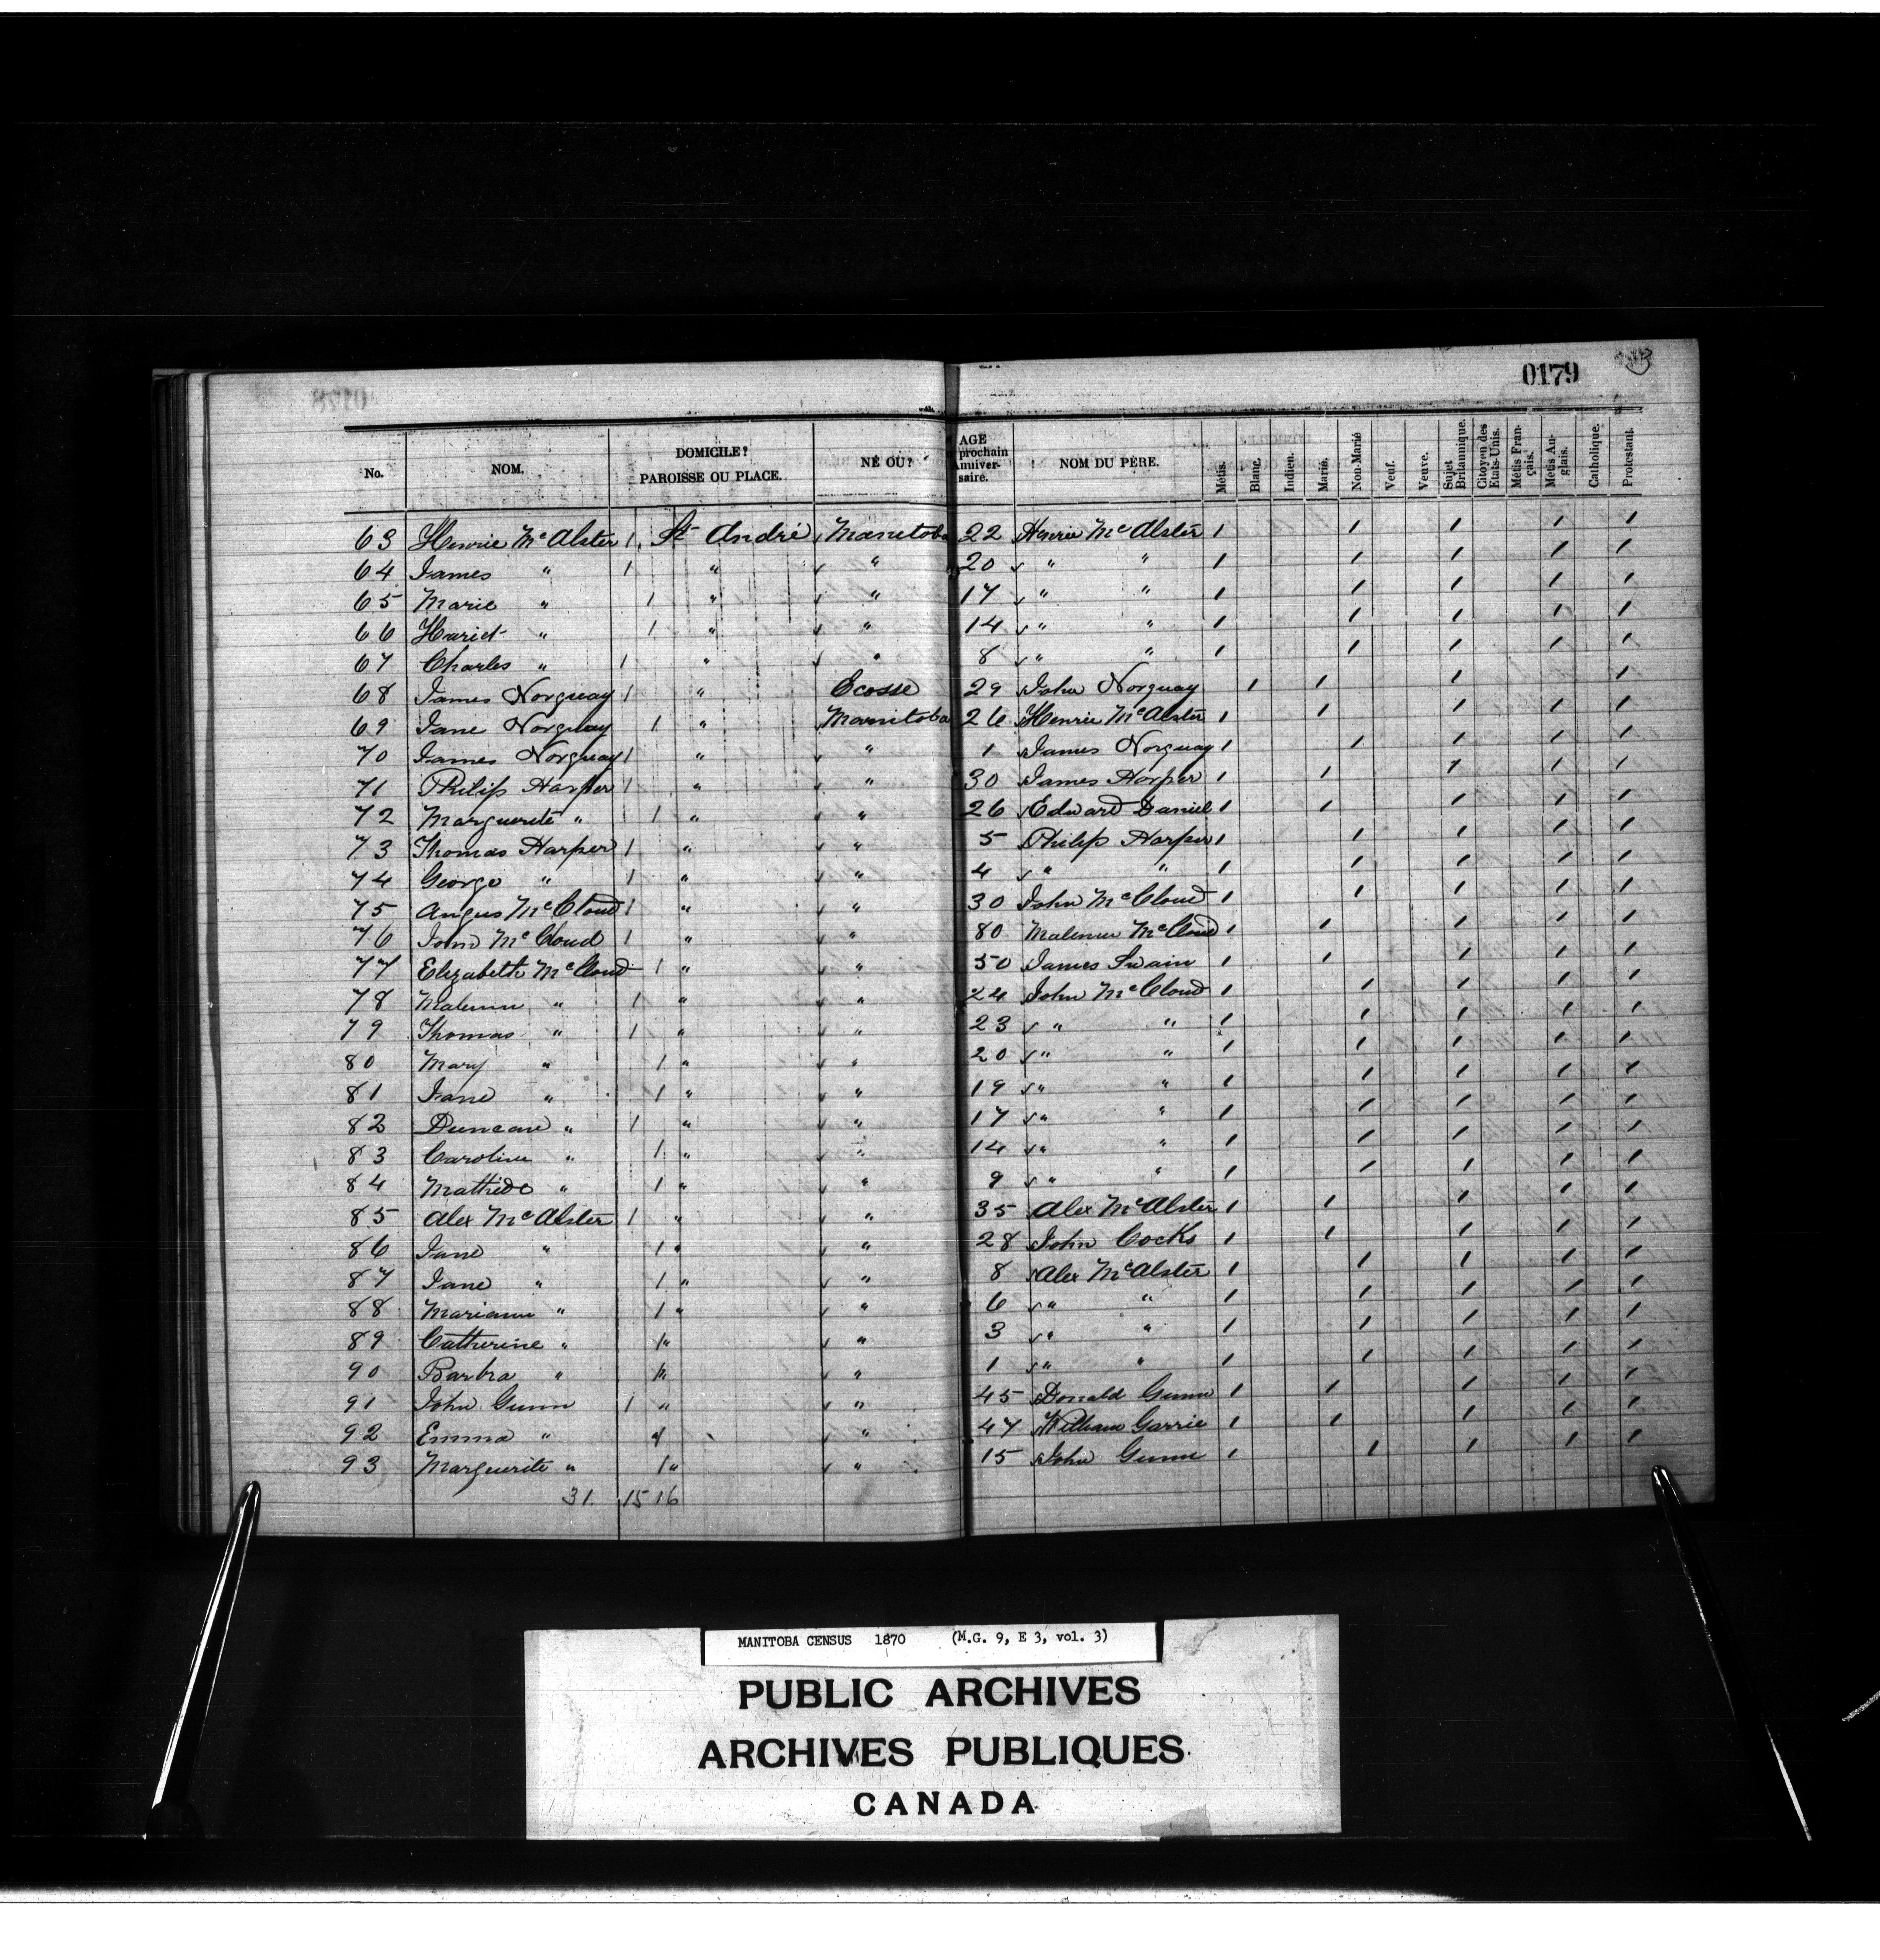 0179
No. NOM. DOMICILE? PAROISSE OU PLACE. NÉ OÙ? AGE prochain Anniver-saire. NOM DU PÈRE. Métis. Blanc. Indien. Marié. Non-Marié Veuf. Veuve. Sujet Britannique. Citoyen des Etats-Unis. Métis Fran-çais. Métis An-glais. Catholique. Protestant.
63 Henrie McAlster 1 St André Manitoba 22 Henrie McAlster 1 1 1 1 1
64 James " 1 " " 20 " " 1 1 1 1 1
65 Marie " 1 " " 17 " " 1 1 1 1 1
66 Hariet " 1 " " 14 " " 1 1 1 1 1
67 Charles " 1 " " 8 " " 1 1 1 1 1
68 James Norquay 1 " Ecosse 29 John Norquay 1 1 1 1
69 Jane Norquay 1 " Manitoba 26 Henrie McAlster 1 1 1 1 1
70 James Norquay 1 " " 1 James Norquay 1 1 1 1 1
71 Philip Harper 1 " " 30 James Harper 1 1 1 1 1
72 Marguerite " 1 " " 26 Edward Daniel 1 1 1 1 1
73 Thomas Harper 1 " " 5 Philip Harper 1 1 1 1 1
74 George " 1 " " 4 " " 1 1 1 1 1
75 Angus McCloud 1 " " 30 John McCloud 1 1 1 1 1
76 John McCloud 1 " " 80 McCloud 1 1 1 1 1
77 Elizabeth McCloud 1 " " 50 James Swain 1 1 1 1 1
78 " 1 " " 24 John McCloud 1 1 1 1 1
79 Thomas " 1 " " 23 " " 1 1 1 1 1
80 Mary " 1 " " 20 " " 1 1 1 1 1
81 Jane " 1 " " 19 " " 1 1 1 1 1
82 Duncan " 1 " " 17 " " 1 1 1 1 1
83 Caroline " 1 " " 14 " " 1 1 1 1 1
84 " 1 " " 9 " " 1 1 1 1 1
85 Alex McAlster 1 " " 35 Alex McAlster 1 1 1 1 1
86 Jane " 1 " " 28 John Cocks 1 1 1 1 1
87 Jane " 1 " " 8 Alex McAlster 1 1 1 1 1
88 Mariann " 1 " " 6 " " 1 1 1 1 1
89 Catherine " 1 " " 3 " " 1 1 1 1 1
90 Barbra " 1 " " 1 " " 1 1 1 1 1
91 John Gunn 1 " " 45 Donald Gunn 1 1 1 1 1
92 Emma " 1 " " 47 William Garrie 1 1 1 1 1
93 Marguerite " 1 " " 15 John Gunn 1 1 1 1 1
31. 15 16
MANITOBA CENSUS 1870 (M.G. 9, E 3, vol. 3)
PUBLIC ARCHIVES
ARCHIVES PUBLIQUES
CANADA